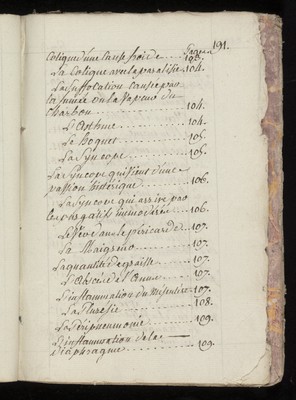 191.
Pages
Colique d'une cause froide..... 103.
La Colique avec la paralisie. 104.
La suffocation causée par
la fumée ou la Vapeur du
Charbon............ 104.
L'asthme............ 104.
Le hoquet............ 105.
La Syncope............ 105.
La Syncope qui vient d'une
passion histérique....... 106.
La Syncope qui arrive par
les purgatifs immodérés.... 106.
Le Pus dans le péricarde.. 107.
La Maigreur.......... 107.
La quantité de graisse.... 107.
L'abscés de l'aine...... 107.
L'inflammation du Mésentère. 107.
La Pluresie.......... 108.
La Péripneumonie....... 109.
L'inflammation de la
diaphragme.......... 109.